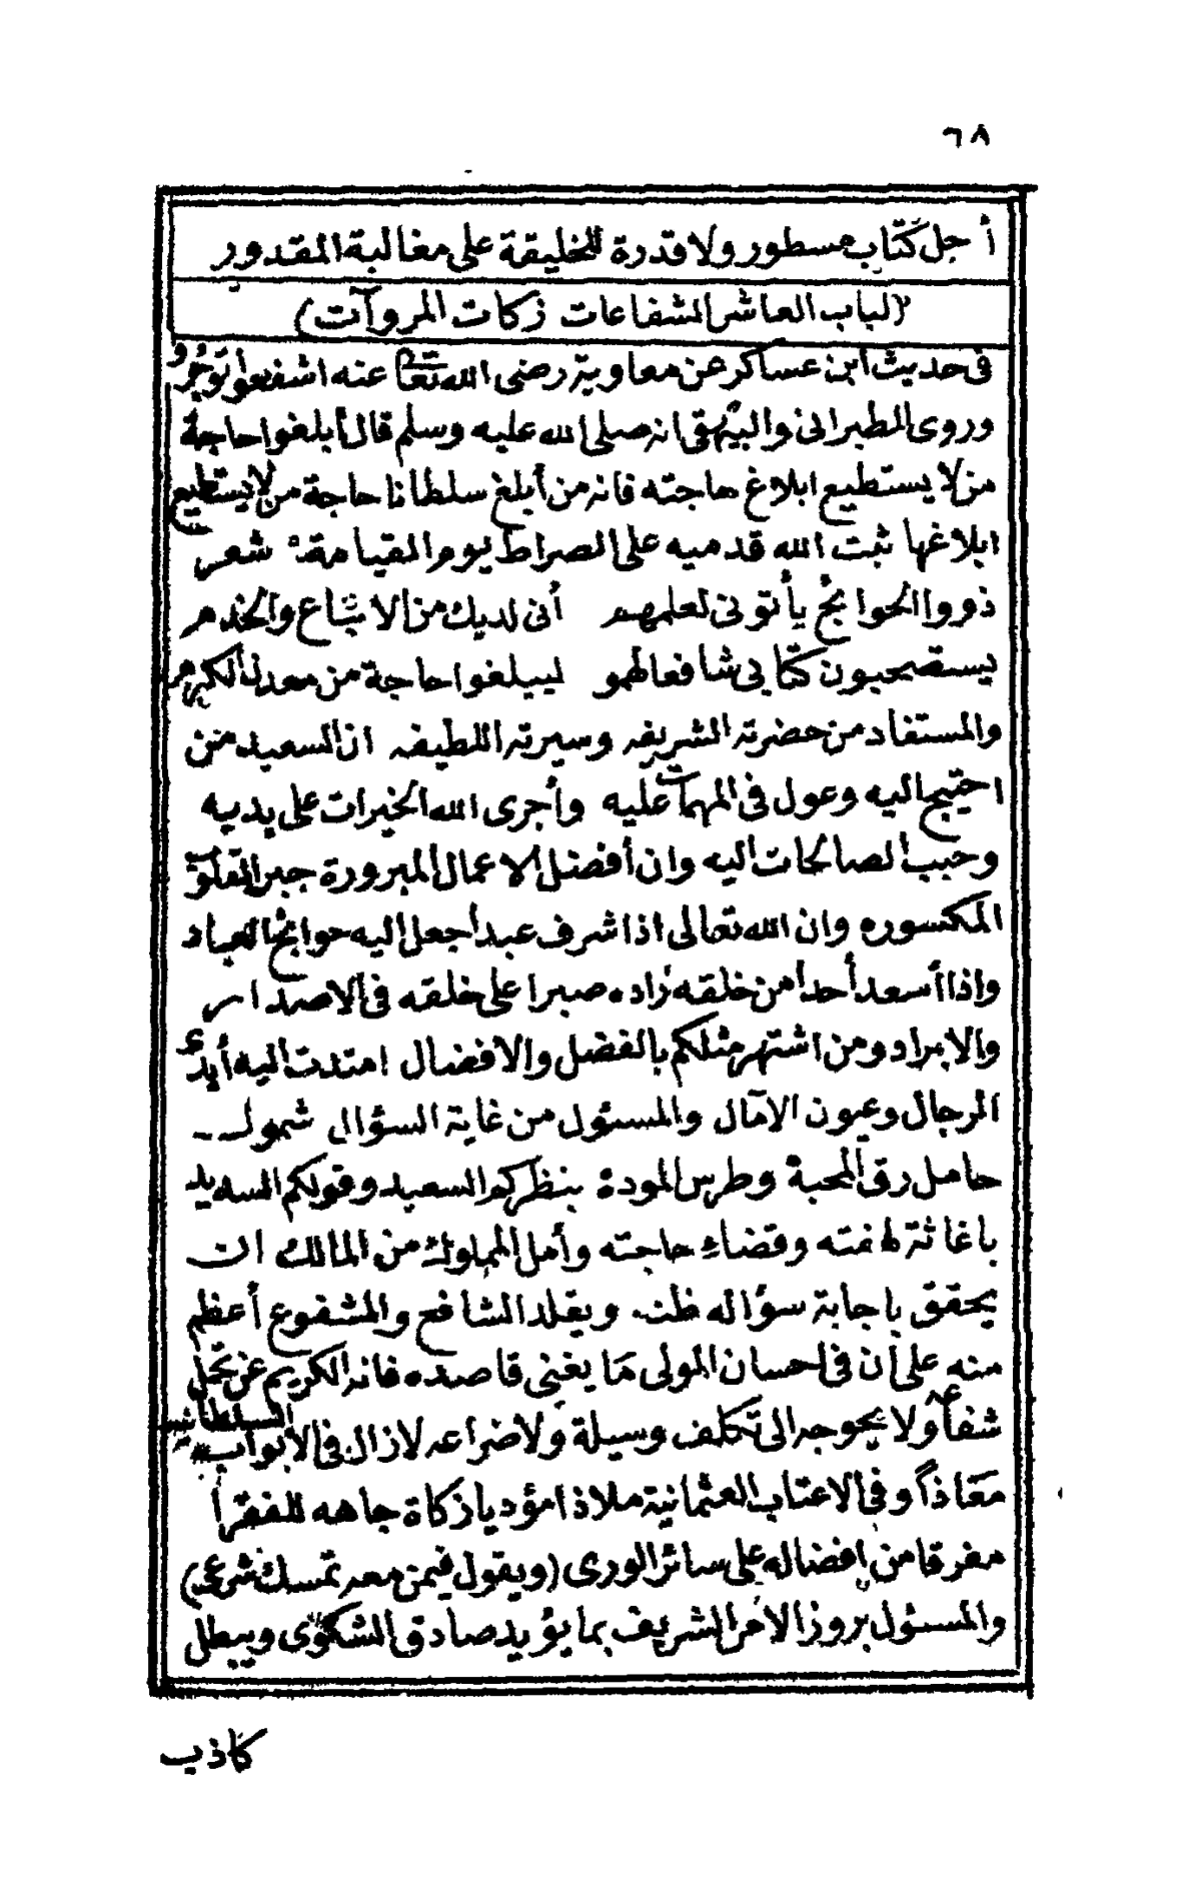 ٦٨
أجل كتاب مسطور ولا قدرة للخليقة على مغالبة المقدور
(الباب العاشر الشفاعات زكات المروآت)
فى حديث ابن عساكر عن معاوية رضى الله تعا عنه اشفعوا توجروا
وروى الطبرانى والبيهقى انه صلى الله عليه وسلم قال أبلغوا حاجة
من لا يستطيع ابلاغ حاجته فانه من أبلغ سلطانا حاجة من لا يستطيع
ابلاغها ثبت الله قدميه على الصراط يوم القيامة شعر
ذووا الحوائج يأتونى لعلمهم أنى لديك من الاتباع والخدم
يستصحبون كتابى شافعا لهمو ليبلغوا حاجة من معدن الكرم
والمستفاد من حضرته الشريفه وسيرته اللطيفه ان السعيد من
احتيج اليه وعول فى المهمات عليه وأجرى الله الخيرات على يديه
وحبب الصالحات اليه وان أفضل الاعمال المبرورة جبر القلوب
المكسوره وان الله تعالى اذا شرف عبدا جعل اليه حوائج العباد
واذا أسعد أحدا من خلقه زاده صبرا على خلقه فى الاصدار
والايراد ومن اشتهر مثلكم بالفضل والافضال امتدت اليه أيدى
الرجال وعيون الآمال والمسئول من غاية السؤال شمول
حامل رق المحبة وطرس المودة بنظركم السعيد وقولكم السديد
باغاثة لهفته وقضاء حاجته وأمل المملوك من المالك ان
يحقق باجابة سؤاله ظنه ويقلد الشافع والمشفوع أعظم
منه على أن فى احسان المولى ما يغنى قاصده فانه الكريم عن تحمل
شفاعة ولا يحوجه الى تكلف وسيلة ولا ضراعه لازال فى الابواب السلطانيه
معاذا وفى الاعتاب العثمانية ملاذا مؤديا زكاة جاهه للفقرا
مفرقا من افضاله على سائر الورى (ويقول فيمن معه تمسك شرعى)
والمسئول بروز الامر الشريف بما يؤيد صادق الشكوى ويبطل
كاذب